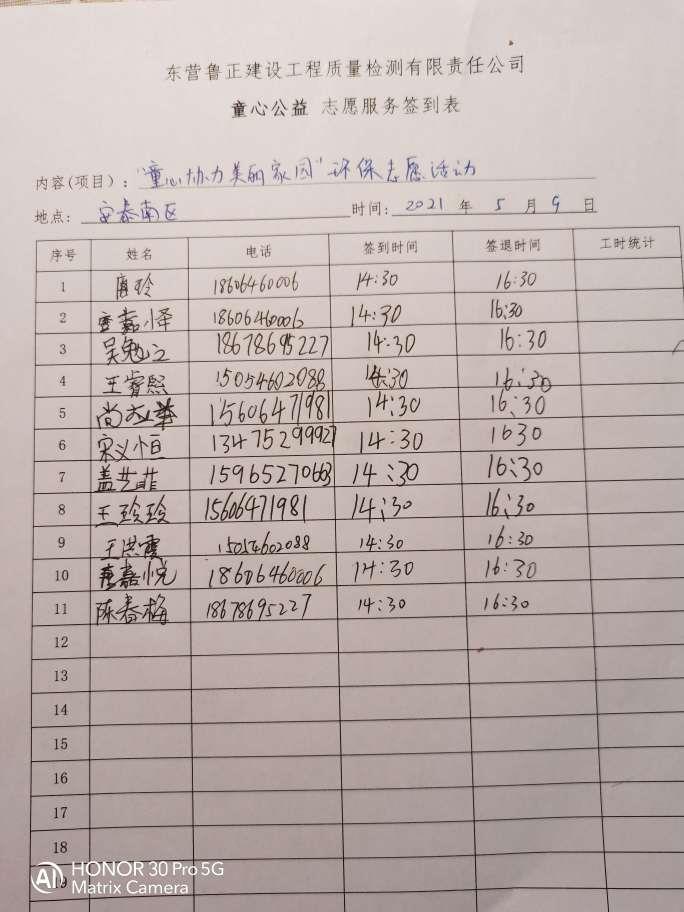 东营鲁正建设工程质量检测有限责任公司
童心公益 志愿服务签到表
内容(项目)："童心协力美丽家园"环保志愿活动
地点：安泰南区 时间：2021 年 5 月 9 日
序号 姓名 电话 签到时间 签退时间 工时统计
1 唐玲 18606460006 14:30 16:30
2 嘉怿 18606460006 14:30 16:30
3 吴勉之 18678695227 14:30 16:30
4 王睿熙 15054602088 14:30 16:30
5 尚 15606471981 14:30 16:30
6 宋义恒 13475299927 14:30 1630
7 盖艺菲 15965270663 14:30 16:30
8 王珍珍 15606471981 14:30 16:30
9 王洪霞 15054602088 14:30 16:30
10 嘉悦 18606460006 14:30 16:30
11 陈春梅 18678695227 14:30 16:30
12
13
14
15
16
17
18
19
AI HONOR 30 Pro 5G
Matrix Camera